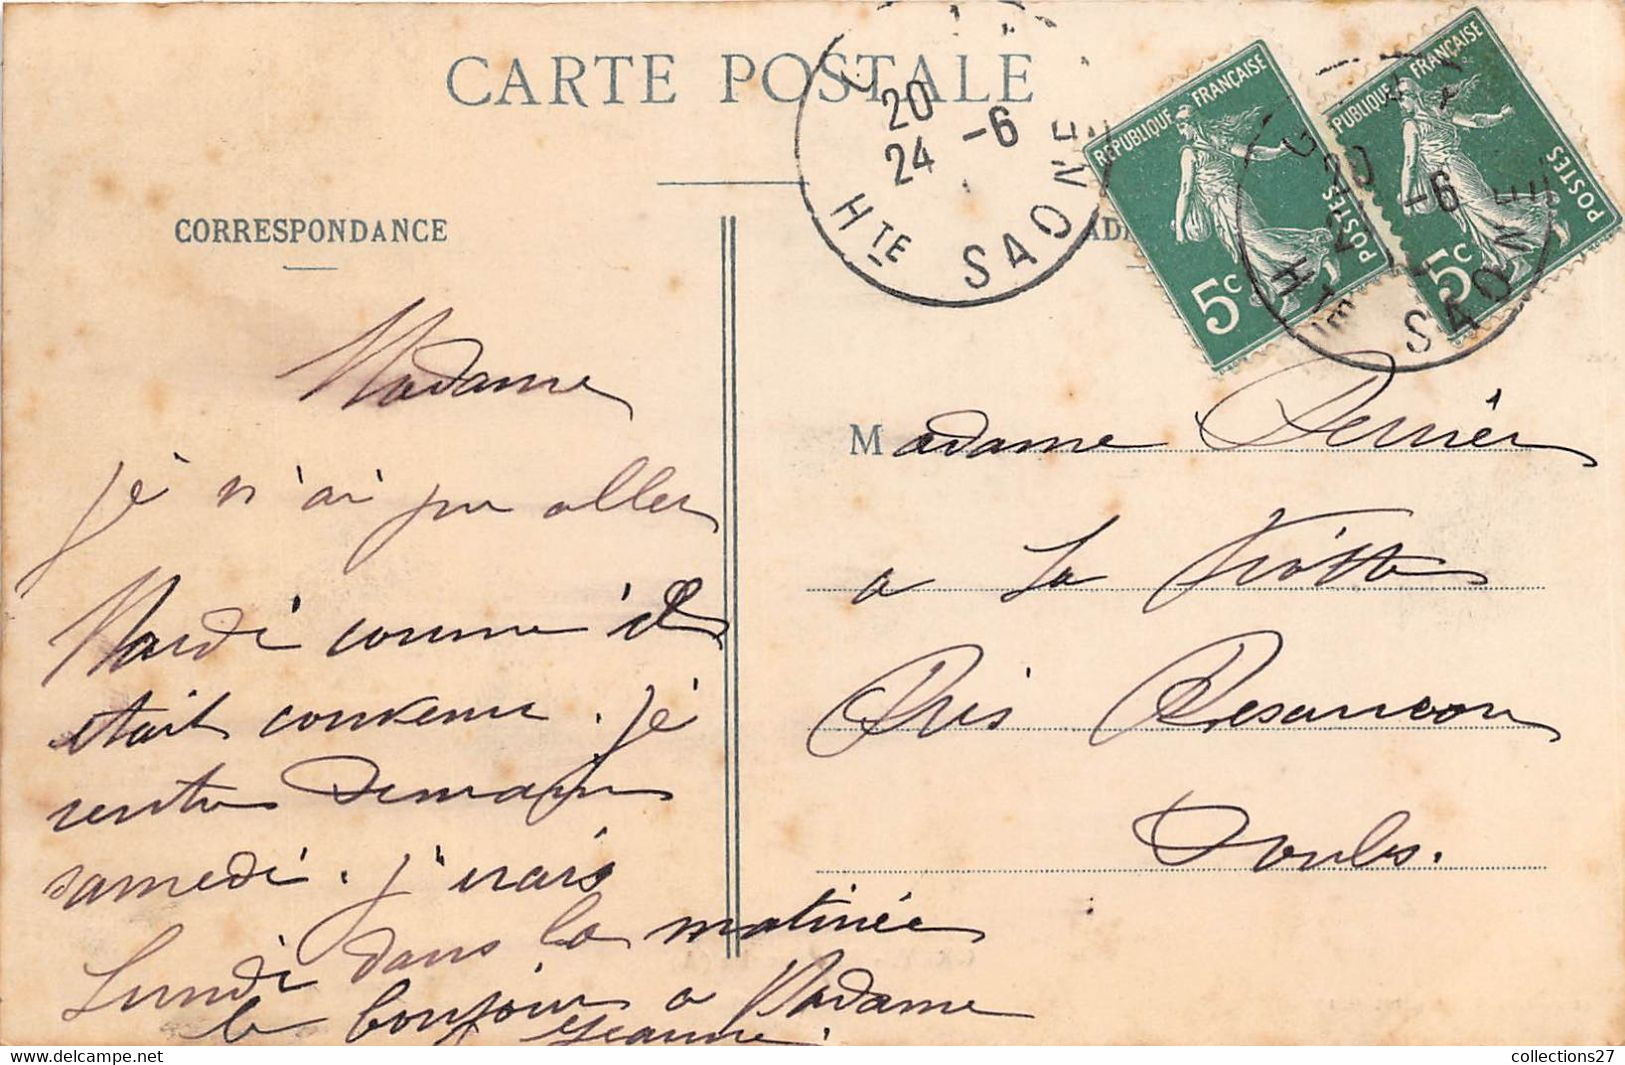 CARTE POSTALE
CORRESPONDANCE
Madame
je n'ai pu aller
Mardi comme il
était convenu. je
rentre Demain
samedi. j'irais
Lundi dans la matinée
le bonjour a Madame
Jeanne.
20
24 -6
Hte SAONE
RÉPUBLIQUE FRANÇAISE
POSTES
5c
RÉPUBLIQUE FRANÇAISE
POSTES
5c
20
-6
Hte SAONE
AD
Madame Perrier
a La Trotte
Près Besancon
Doubs.
collections27